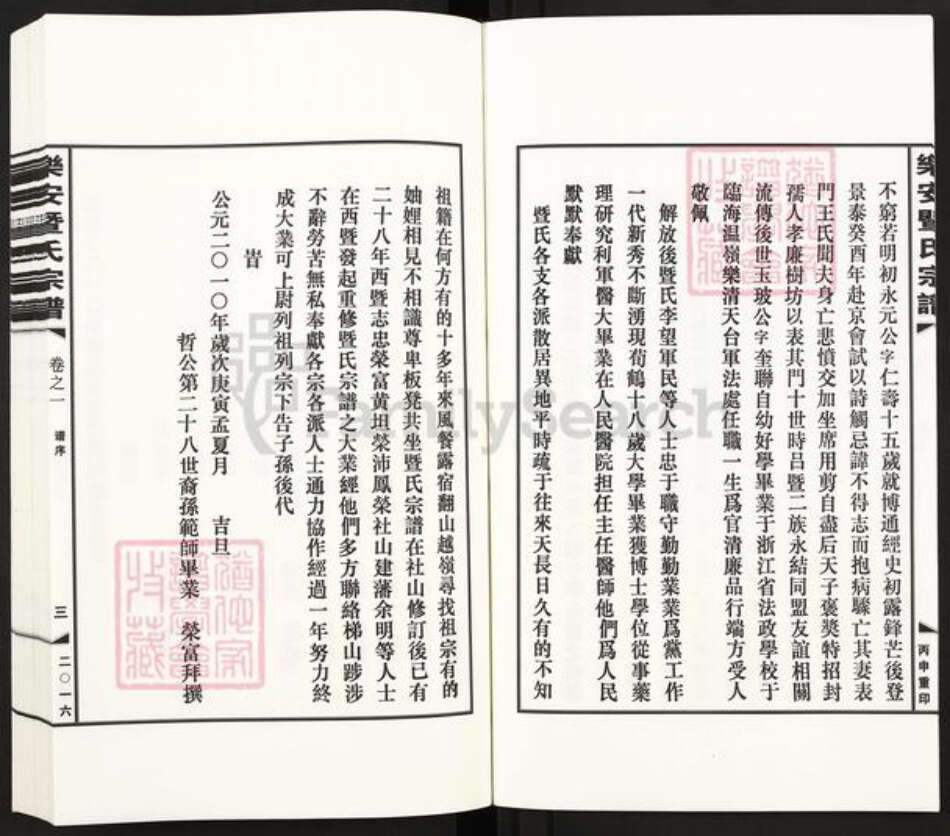 樂安暨氏宗譜
丙申重印
不窮若明初永元公字仁壽十五歲就博通經史初露鋒芒後登
景泰癸酉年赴京會試以詩觸忌諱不得志而抱病驟亡其妻表
門王氏聞夫身亡悲憤交加坐席用剪自盡后天子褒獎特招封
孺人孝廉樹坊以表其門十世時呂暨二族永結同盟友誼相關
流傳後世玉玻公字奎聯自幼好學畢業于浙江省法政學校于
臨海温嶺樂清天台軍法處任職一生爲官清廉品行端方受人
敬佩
解放後暨氏李望軍民等人士忠于職守勤勤業業爲黨工作
一代新秀不斷湧現荀鶴十八歲大學畢業獲博士學位從事藥
理研究利軍醫大畢業在人民醫院担任主任醫師他們爲人民
默默奉獻
暨氏各支各派散居異地平時疏于往來天長日久有的不知
祖籍在何方有的十多年來風餐露宿翻山越嶺尋找祖宗有的
妯娌相見不相識尊卑板凳共坐暨氏宗譜在社山修訂後已有
二十八年西暨志忠榮富黄坦榮沛鳳榮社山建藩余明等人士
在西暨發起重修暨氏宗譜之大業經他們多方聯絡梯山踄涉
不辭勞苦無私奉獻各宗各派人士通力協作經過一年努力終
成大業可上尉列祖列宗下告子孫後代
旹
公元二〇一〇年歲次庚寅孟夏月 吉旦
哲公第二十八世裔孫範師畢業 榮富拜撰
樂安暨氏宗譜
卷之一
谱序
三
二〇一六
FamilySearch